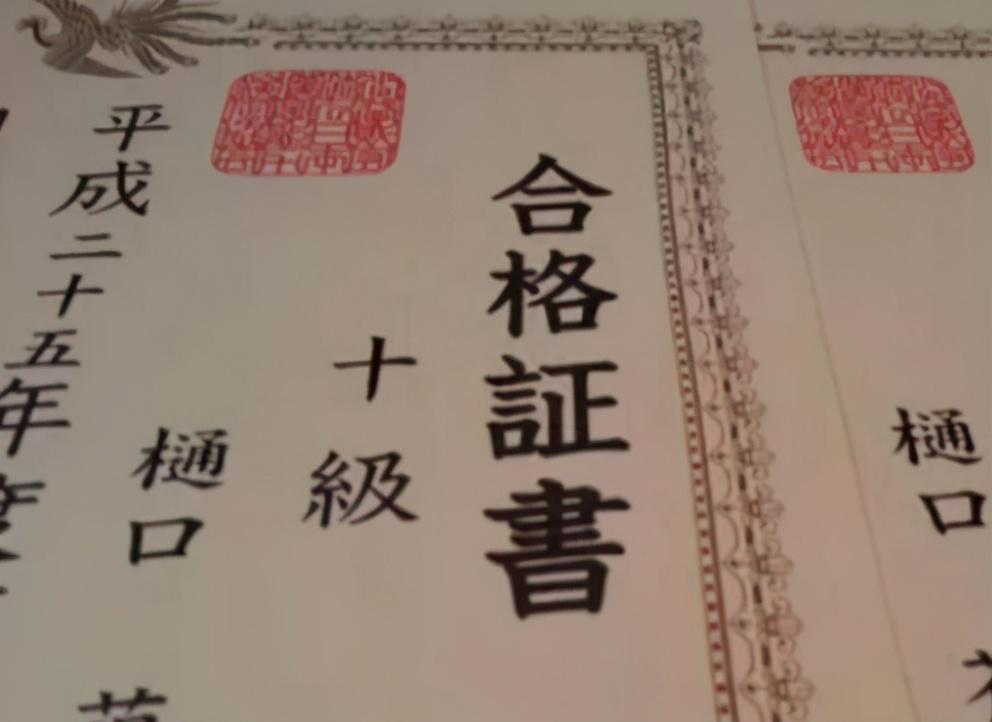 合格証書
十級
樋口
平成二十五年度
樋口